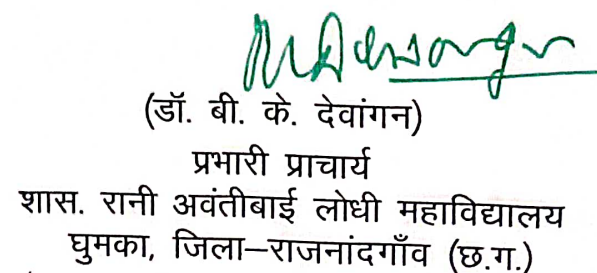 (डॉ. बी. के. देवांगन)
प्रभारी प्राचार्य
शास. रानी अवंतीबाई लोधी महाविद्यालय
घुमका, जिला–राजनांदगाँव (छ.ग.)